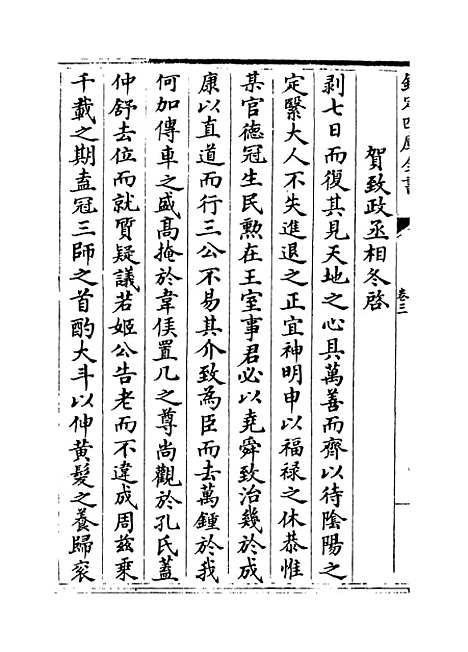 欽定四庫全書
卷三
賀致政丞相冬啓
剥七日而復其見天地之心具萬善而齊以待陰陽之
定緊大人不失進退之正宜神明申以福禄之休恭惟
某官德冠生民勲在王室事君必以堯舜致治幾於成
康以直道而行三公不易其介致為臣而去萬鍾於我
何加傳車之盛髙掩於韋侯置几之尊尚觀於孔氏蓋
仲舒去位而就質疑議若姬公告老而不違成周兹乗
千載之期盍冠三師之首酌大斗以伸黄髮之養歸衮